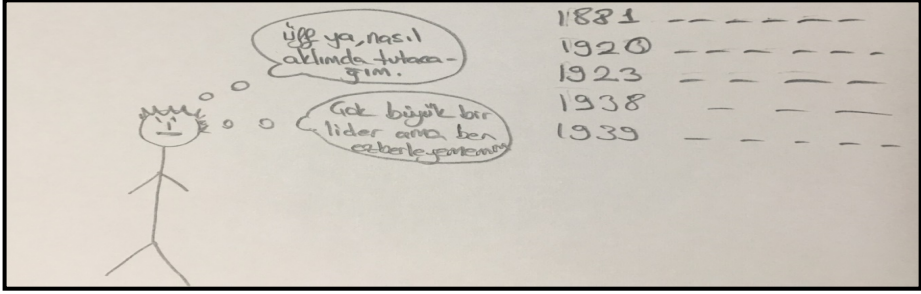 üff ya, nasıl
aklımda tutaca-
ğım.
Çok büyük bir
lider ama ben
ezberleyemem
1881
1920
1923
1938
1939